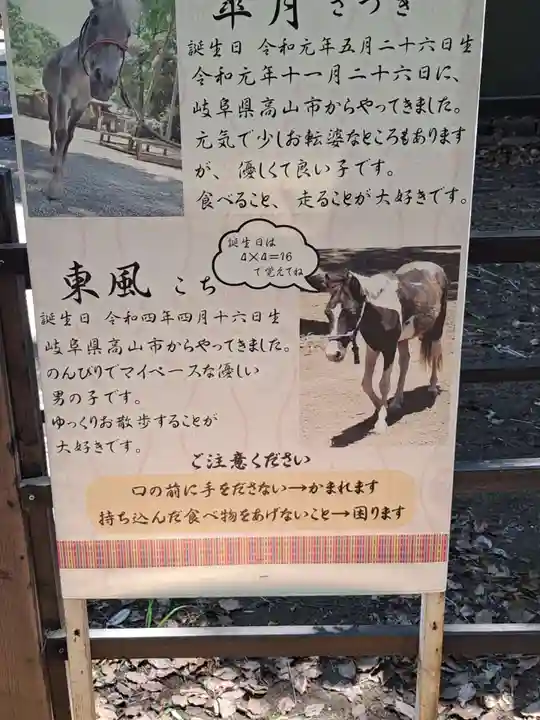 皐月 さつき
誕生日 令和元年五月二十六日生
令和元年十一月二十六日に、
岐阜県高山市からやってきました。
元気で少しお転婆なところもあります
が、優しくて良い子です。
食べること、走ることが大好きです。
東風 こち
誕生日は
4×4=16
で覚えてね
誕生日 令和四年四月十六日生
岐阜県高山市からやってきました。
のんびりでマイペースな優しい
男の子です。
ゆっくりお散歩することが
大好きです。
ご注意ください
口の前に手をださない→かまれます
持ち込んだ食べ物をあげないこと→困ります